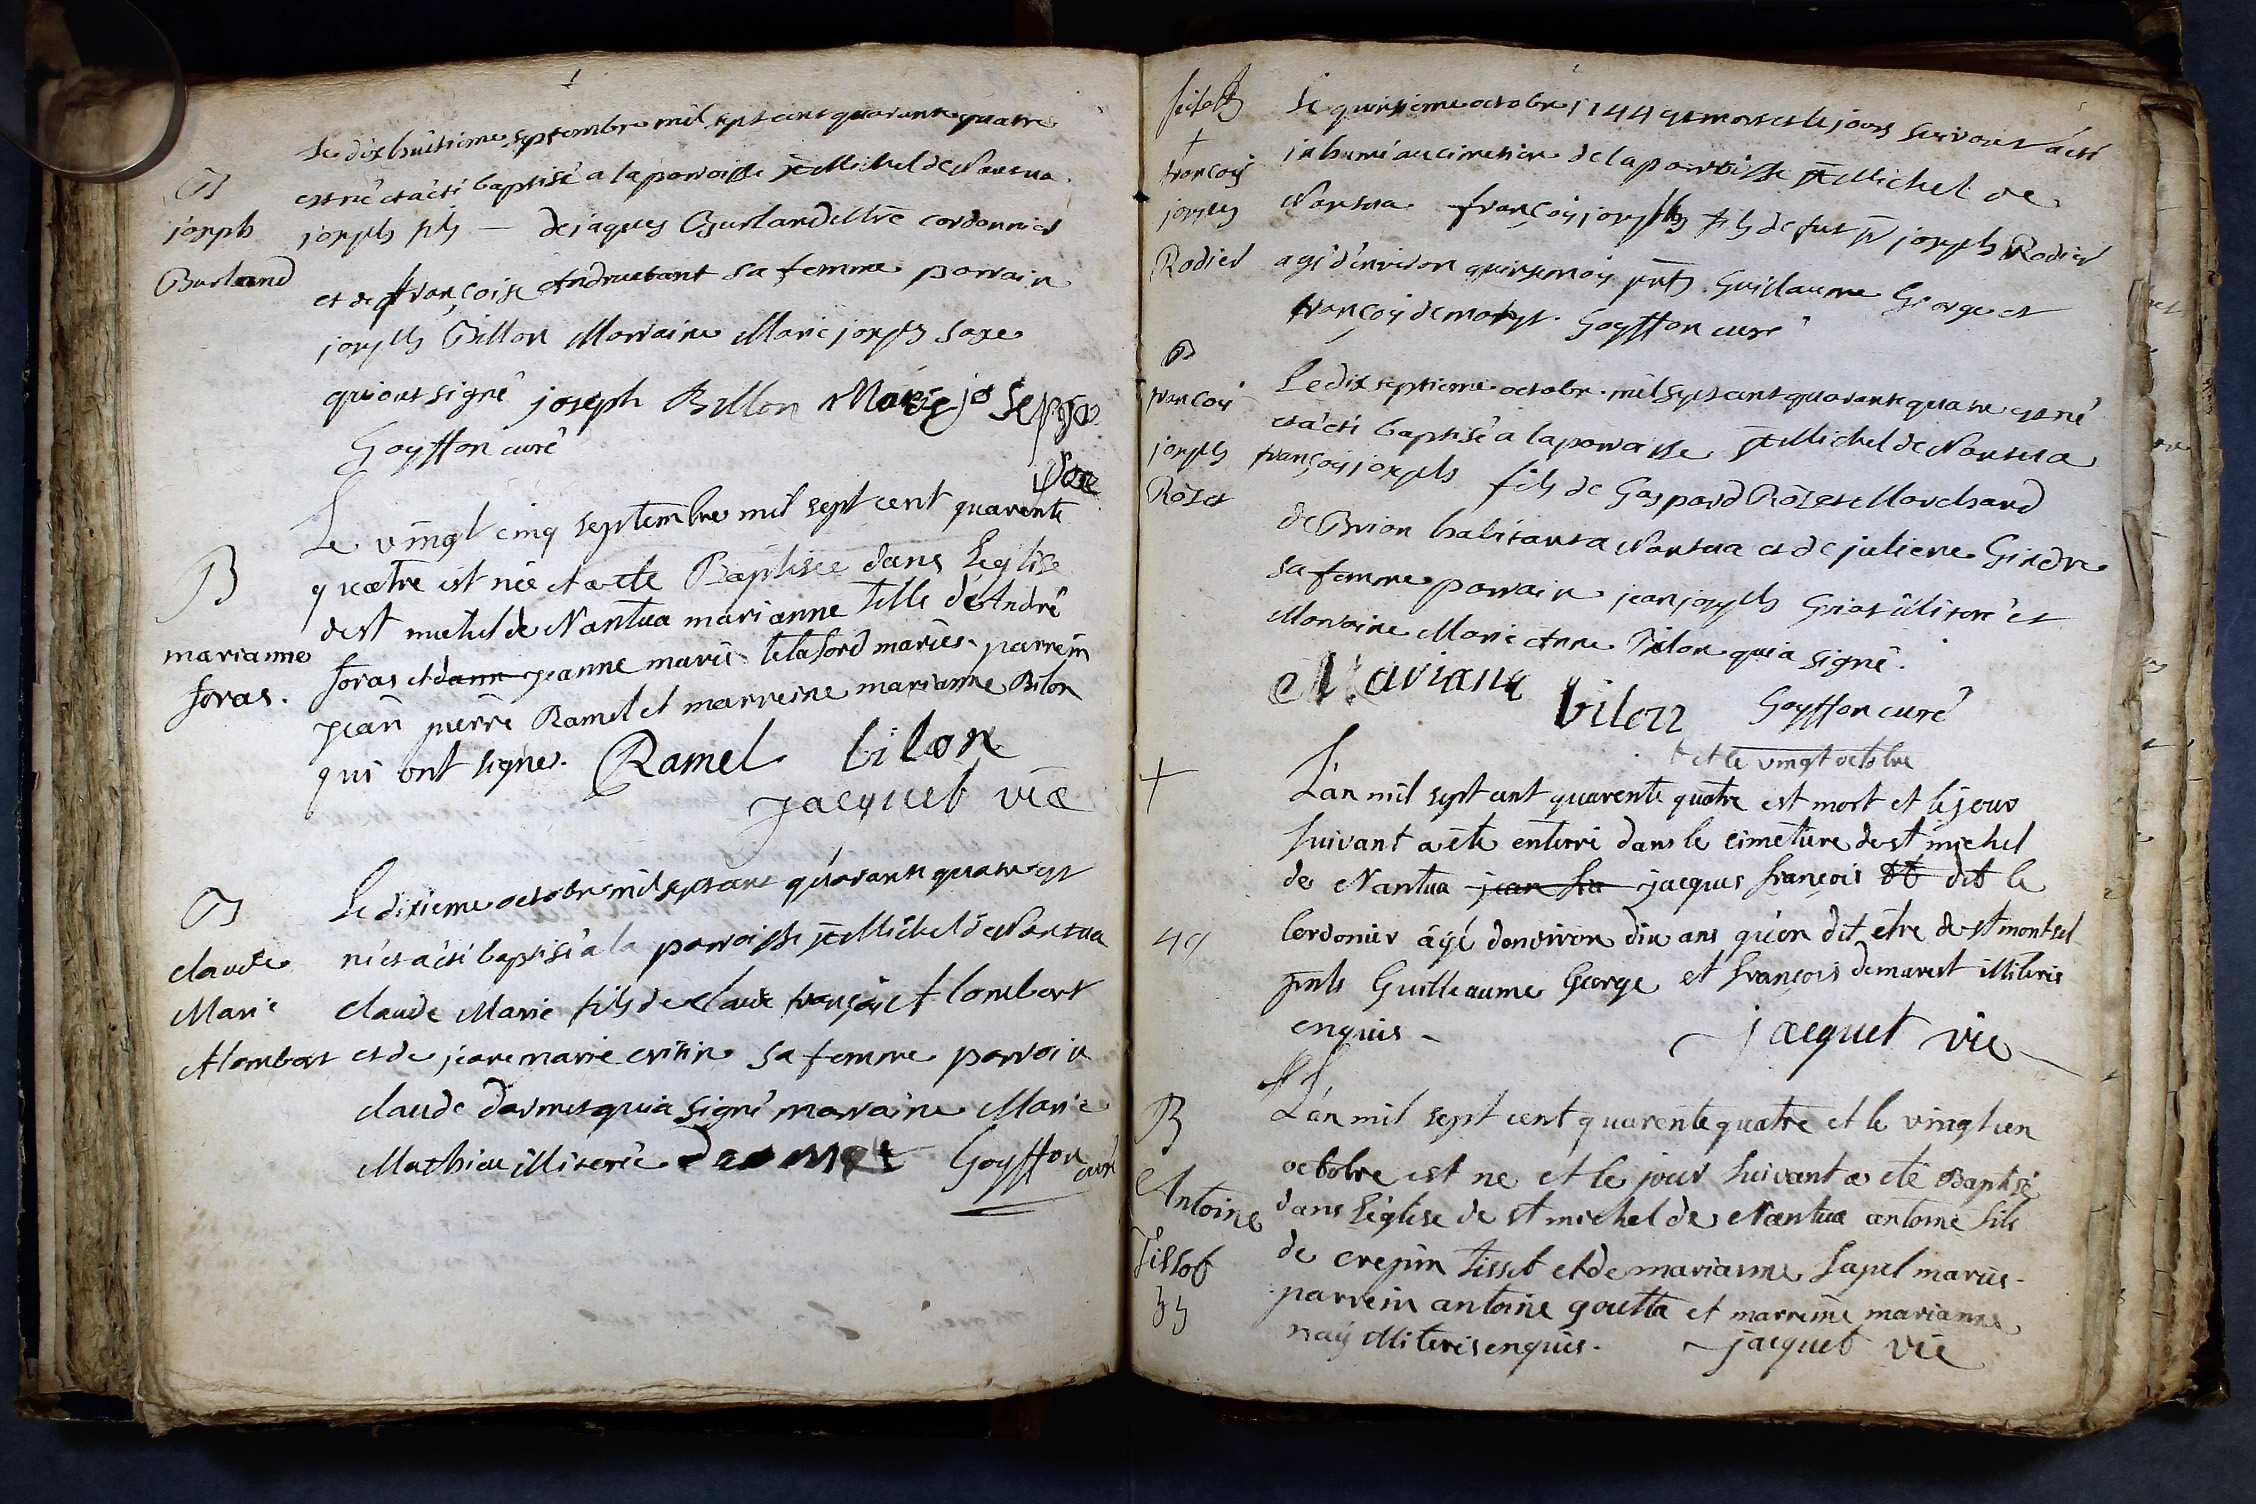 Le dix huitieme septembre mil sept cent quarante quatre
B
est né et a été baptisé a la paroisse st Michel de Nantua
joseph
joseph fils de jaques Burland Mtre cordonnier
Burland
et de françoise Andruetant sa femme parrain
joseph Billon Marraine Marie joseph
qui ont signé joseph Billon Marie joseph
Goyffon curé
Le vingt cinq septembre mil sept cent quarente
B
quatre est née et a ete Baptisée dans L'eglise
marianne
de st michel de Nantua marianne fille d'André
foras.
foras et jeanne marie mariés. parrein
jean pierre Ramel et marreine marianne Bilon
qui ont signé. Ramel bilon
jacquet vic
B
Le dixieme octobre mil sept cent quarante quatre est
claude
né et a été baptisé a la paroisse st Michel de Nantua
Marie
claude Marie fils de claude françois Alombert
Alombert
et de jeane marie sa femme parrain
claude darmet qui a signé marraine Marie
Mathieu illiterée Darmet Goyffon curé
Le quinzieme octobre 1744 est mort et le jours suivant a été
+
françois
inhumé au cimetiere de la paroisse st Michel de
joseph
Nantua françois joseph fils de fut sr joseph Rodier
Rodier
agé d'environ quinse mois pnts Guillaume George et
françois demaret. Goyffon curé
B
Le dix septieme octobre mil sept cent quarante quatre est né
françois
et a été baptisé a la paroisse st Michel de Nantua
joseph
françois joseph fils de Gaspard Rôzet Marchand
Rôzet
de Brion habitant a Nantua et de juliene Gindre
sa femme parrain jean joseph illiteré et
Marraine Marie Anne Bilon qui a signé.
Mariane bilon Goyffon curé
+ et le vingt octobre
+
L'an mil sept cent quarente quatre est mort et le jour
suivant a ete enterré dans le cimetiere de st michel
de Nantua jean fra jacques françois dit le
Cordonier âgé d'environ dix ans qu'on dit etre de
pnts Guilleaume George et françois demaret illiteris
enquis jacquet vic
B
L'an mil sept cent quarente quatre et le vingt un
octobre est ne et le jour suivant a eté Baptisé
Antoine
dans L'église de st michel de Nantua antoine fils
Tissot
de crepin tissot et de marianne mariés
parrein antoine goutta et marreine marianne
illiteris enquis. jacquet vic